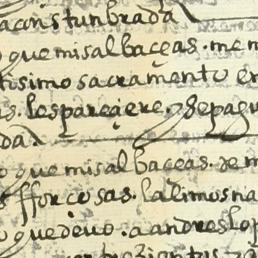 aconstunbrada
que mis albaçeas. me m
tisimo sacramento en
s. les pareçiere. y se pagu
da.
que mis albaçeas. de m
fforcosas. la limosna
que devo. a andres lop